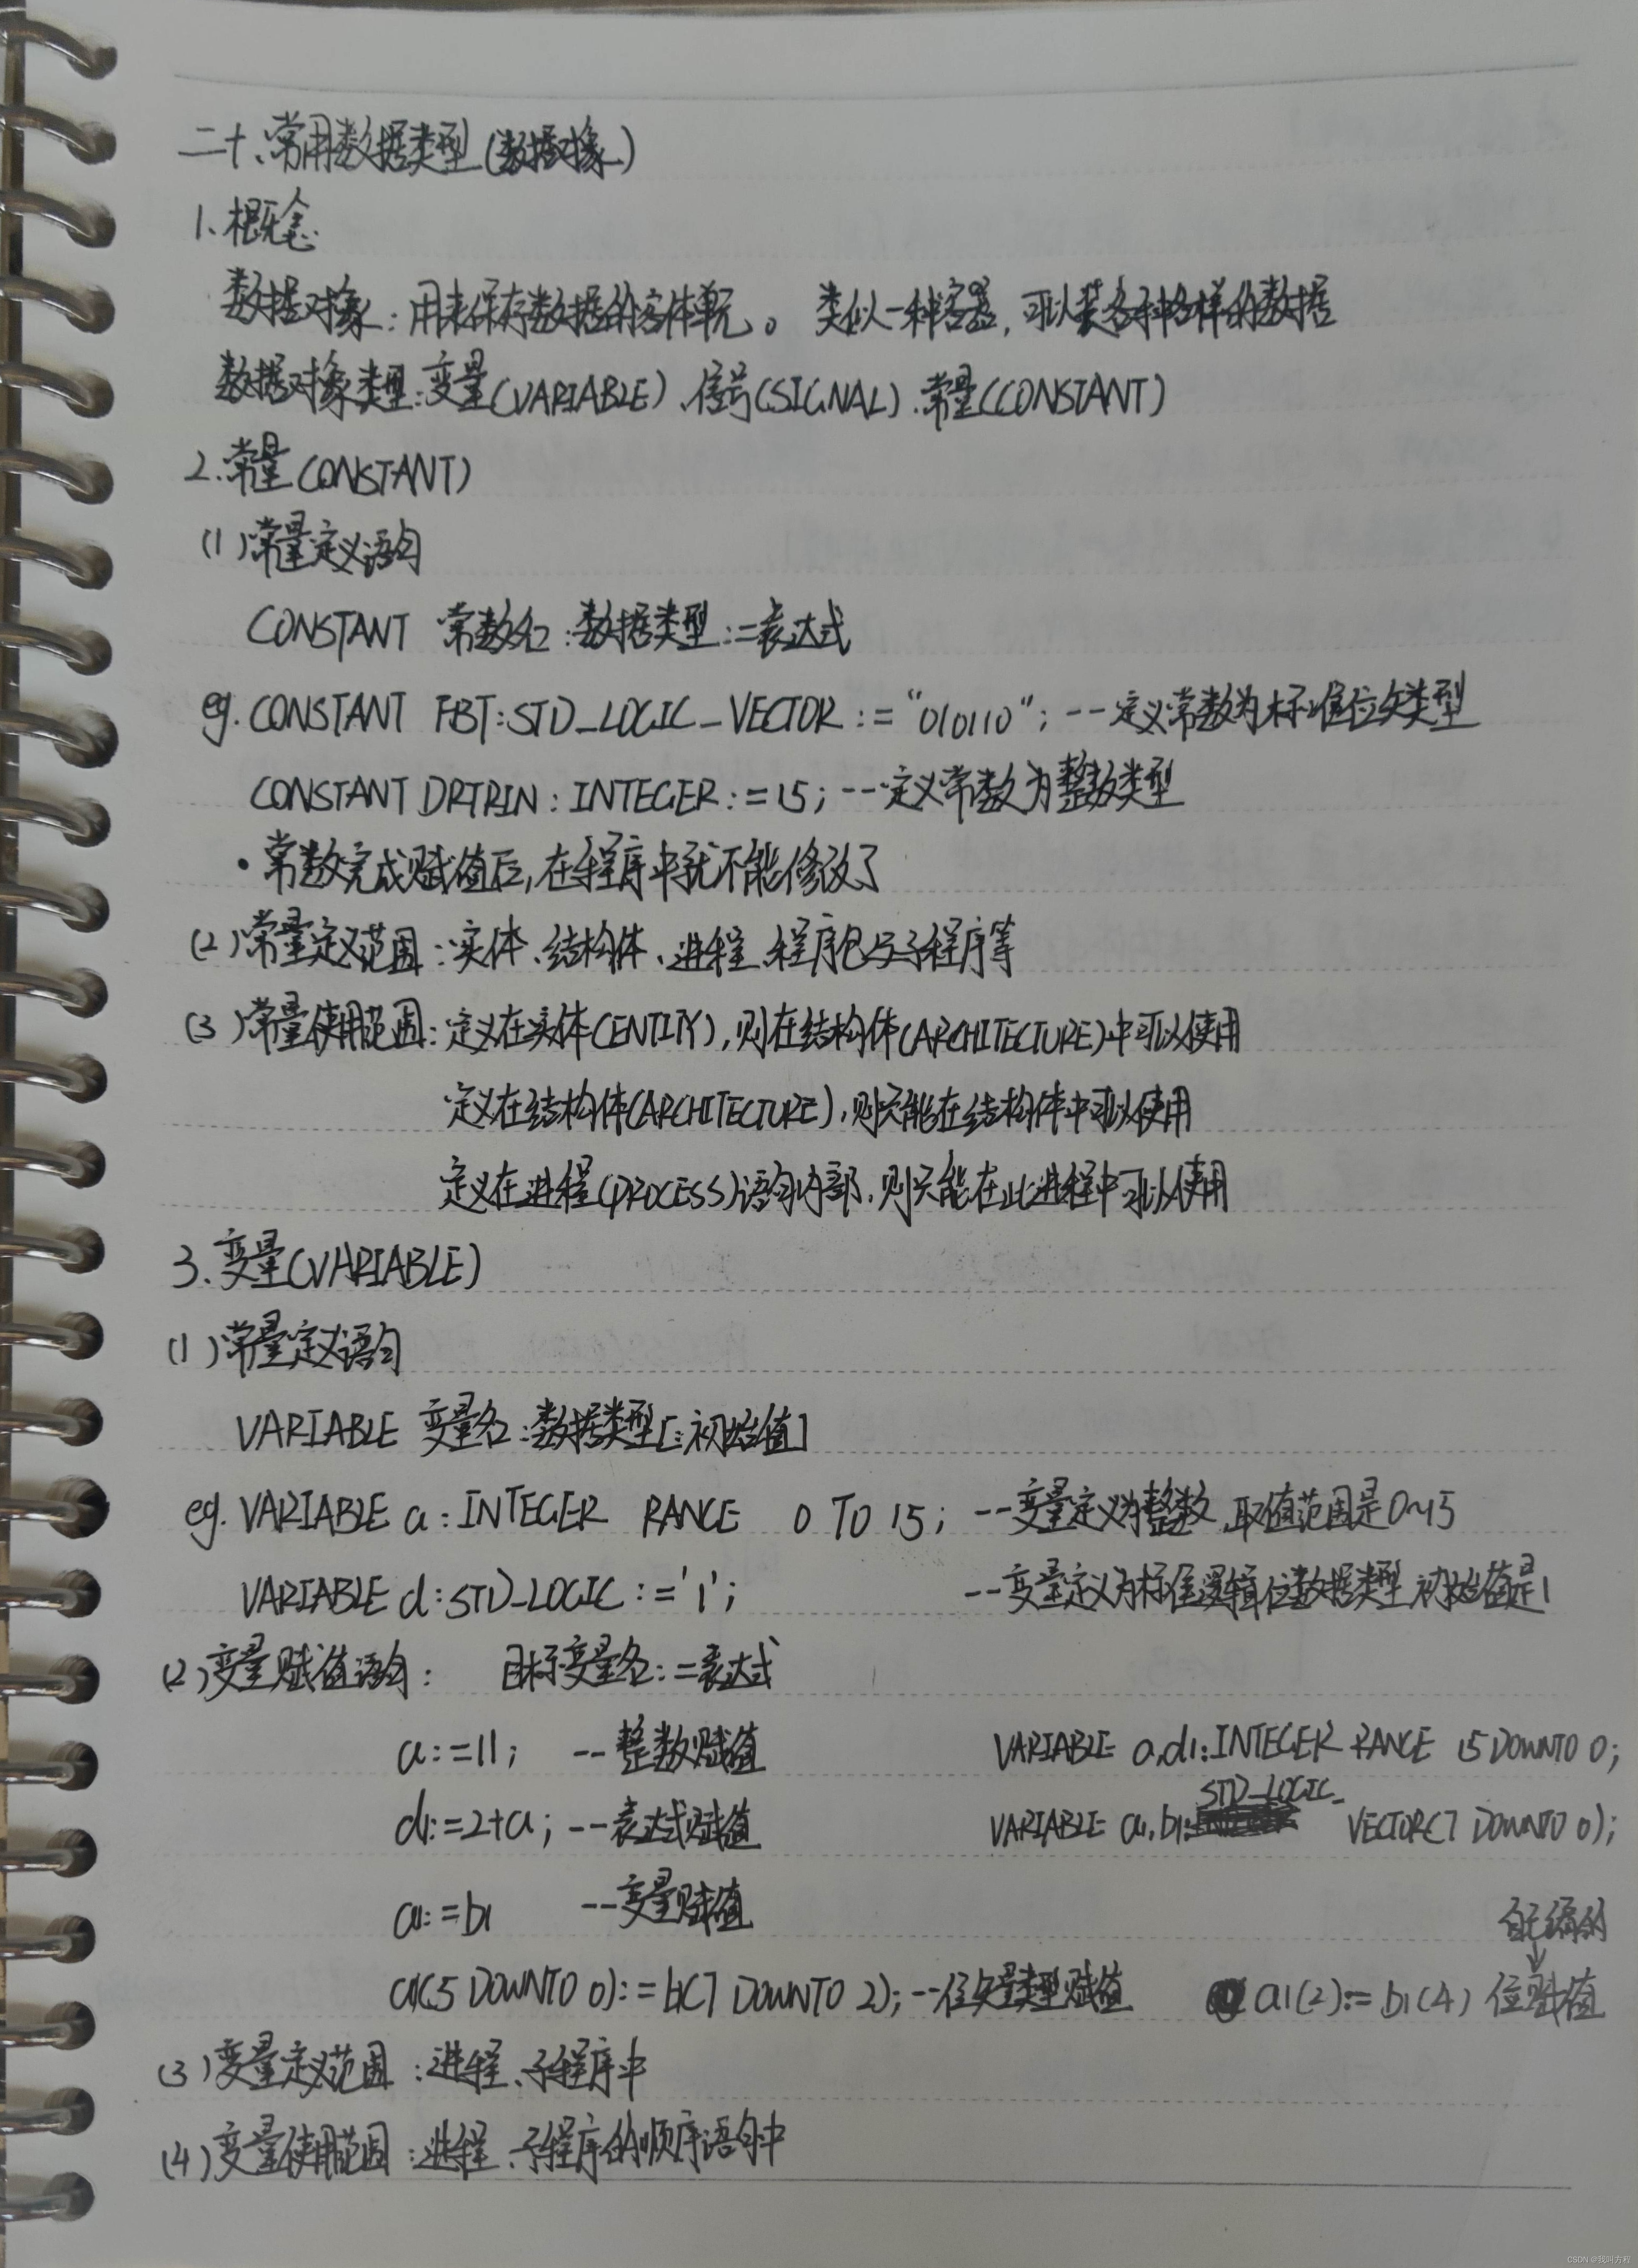 二十、常用数据类型(数据对象)
1、概念
数据对象：用来保存数据的客体单元。 类似一种容器，可以装各种各样的数据
数据对象类型：变量(VARIABLE)、信号(SIGNAL)、常量(CONSTANT)
2.常量(CONSTANT)
(1)常量定义语句
CONSTANT 常数名：数据类型：=表达式
eg. CONSTANT FBT:STD_LOGIC_VECTOR:="010110"; --定义常数为标准位矢类型
CONSTANT DRTRIN:INTEGER:=15; --定义常数为整数类型
·常数完成赋值后，在程序中就不能修改了
(2)常量定义范围：实体、结构体、进程、程序包与子程序等
(3)常量使用范围：定义在实体(ENTITY)，则在结构体(ARCHITECTURE)中可以使用
定义在结构体(ARCHITECTURE)，则只能在结构体中可以使用
定义在进程(PROCESS)语句内部，则只能在此进程中可以使用
3、变量(VARIABLE)
(1)常量定义语句
VARIABLE 变量名：数据类型[：初始值]
eg. VARIABLE a:INTEGER RANGE 0 TO 15; --变量定义为整数，取值范围是0~15
VARIABLE d:STD_LOGIC:='1'; --变量定义为标准逻辑位数据类型，初始值是1
(2)变量赋值语句： 目标变量名：=表达式
a:=11; --整数赋值 VARIABLE a,d1:INTEGER RANGE 15 DOWNTO 0;
d1:=2+a; --表达式赋值 VARIABLE a1,b1:STD_LOGIC_VECTOR(7 DOWNTO 0);
a1:=b1 --变量赋值
自己编的
↓
a1(5 DOWNTO 0):=b1(7 DOWNTO 2); --位矢量类型赋值 a1(2):=b1(4) 位赋值
(3)变量定义范围：进程、子程序中
(4)变量使用范围：进程、子程序的顺序语句中
CSDN @我叫方程